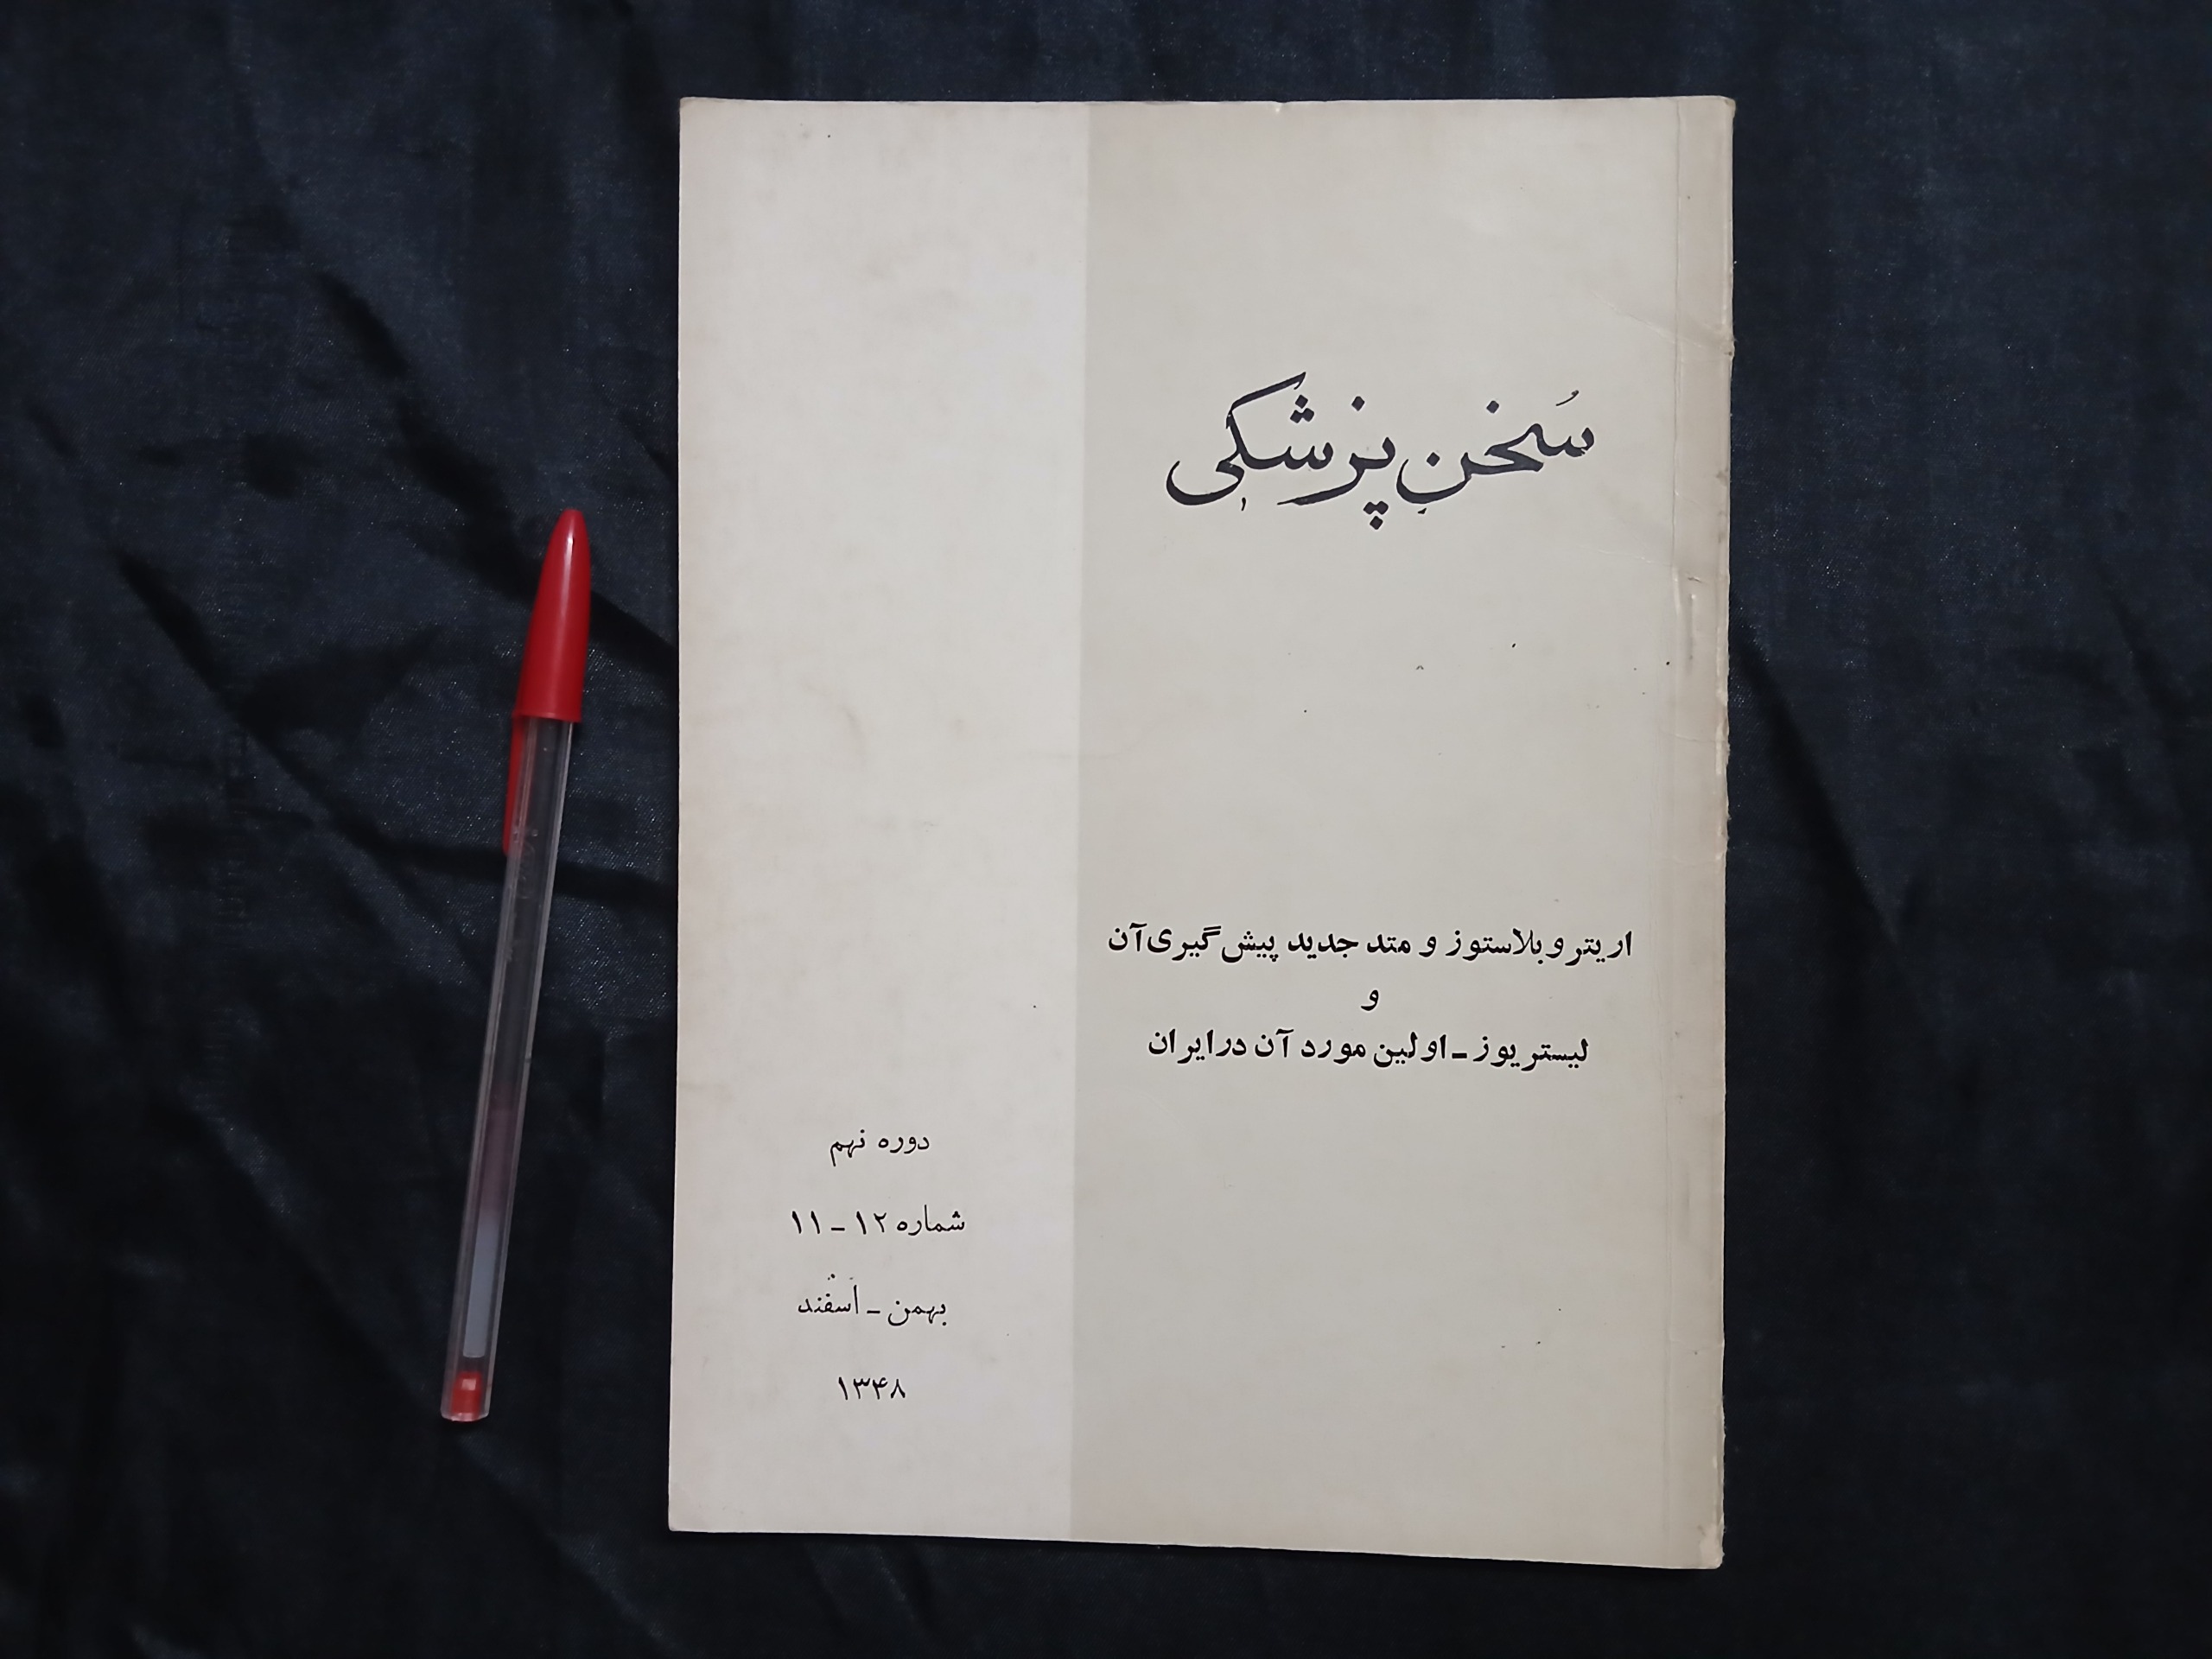 سخن پزشکی
اریتروبلاستوز و متد جدید پیش گیری آن
و
لیستریوز - اولین مورد آن در ایران
دوره نهم
شماره ۱۲ - ۱۱
بهمن - اسفند
۱۳۴۸